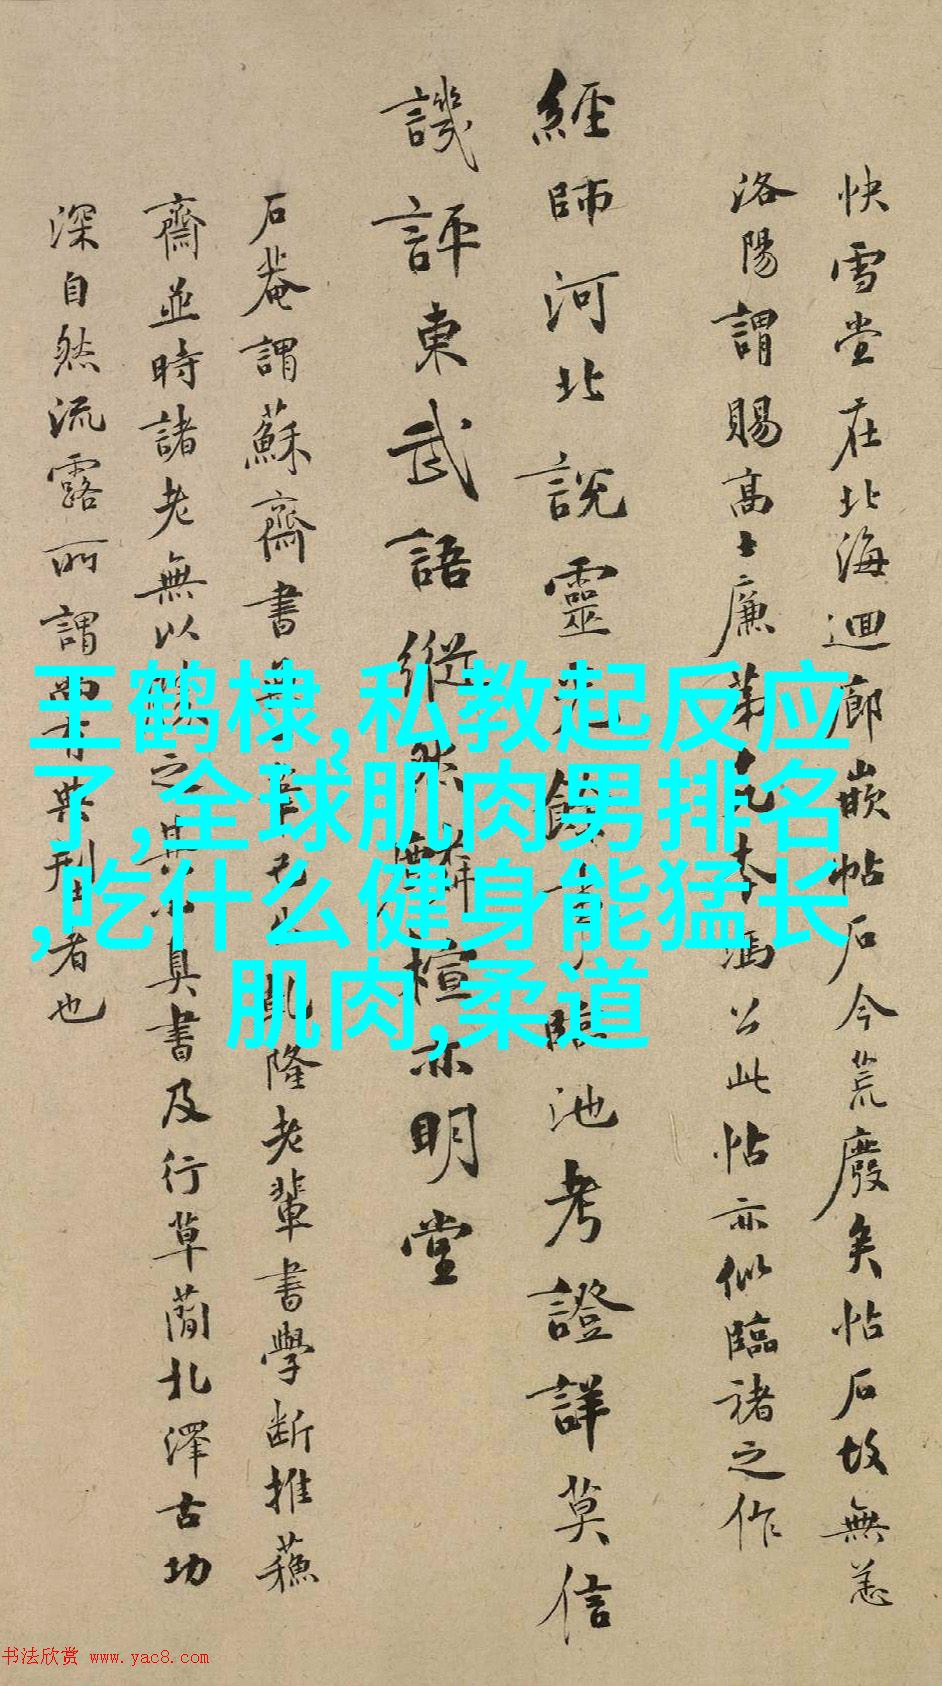 快雪堂在北海迴廊嵌帖石今荒廢矣帖石故無恙
洛陽謂賜高士廉第乞李馮公此帖亦似臨褚之作
經師河北說靈光餘事臨池考證詳莫信
譏評東武語縱橫亦明堂
石菴謂蘇齋書乾隆老輩書學斷推蘇
齋並時諸老無以之具真書及行草蘭北澤古功
深自然流露所謂尚有典型者也
王鹤棣,私教起反应
了,全球肌肉男排名
,吃什么健身能猛长
肌肉,柔道
书法欣赏 www.yac8.com